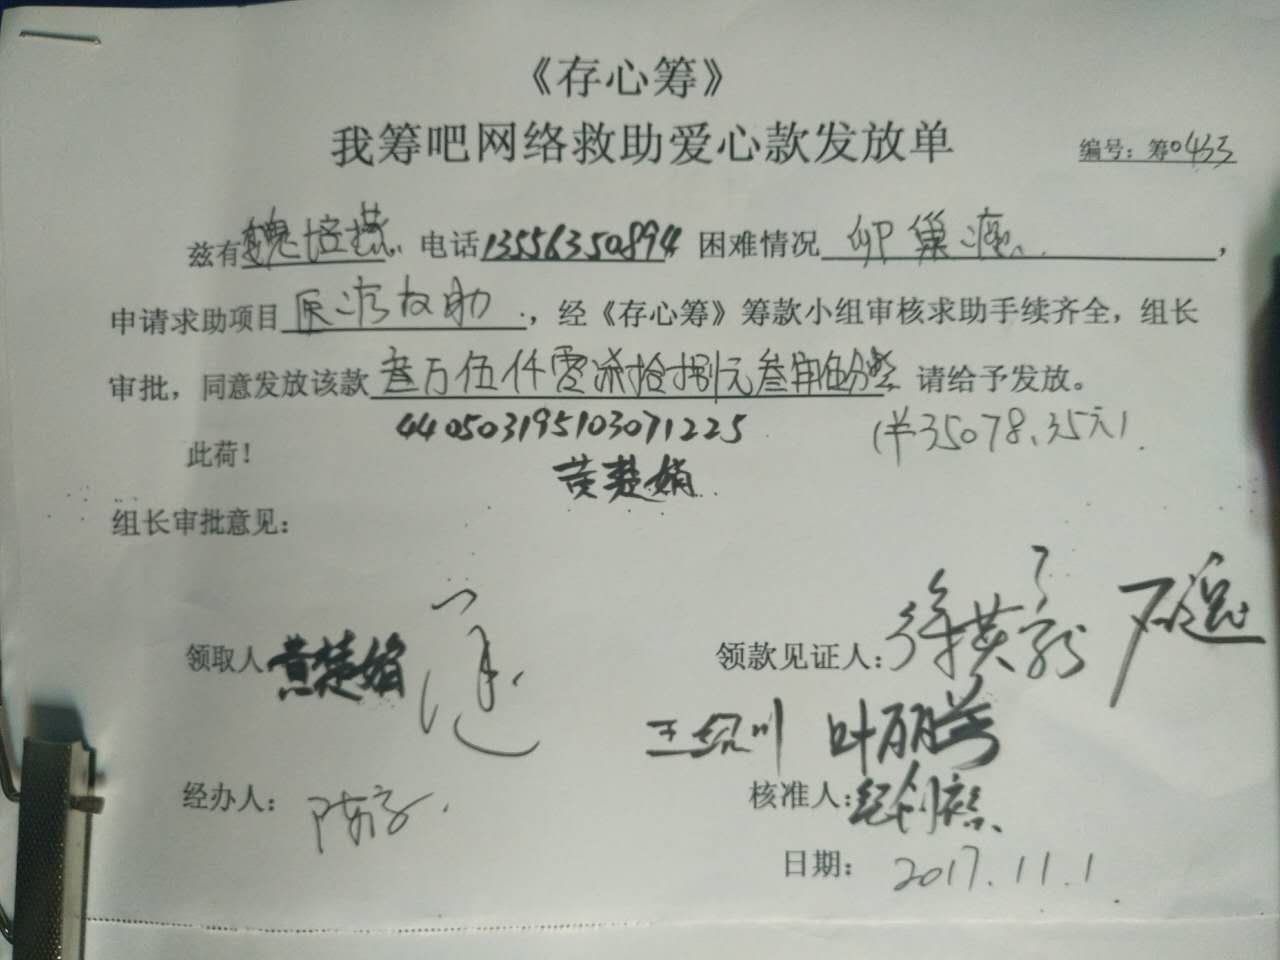 《存心筹》
我筹吧网络救助爱心款发放单
编号：筹0433
兹有魏培燕 电话13556350894 困难情况 卵巢癌，
申请求助项目 医疗救助，经《存心筹》筹款小组审核求助手续齐全，组长
审批，同意发放该款 叁万伍仟零柒拾捌元叁角伍分整 请给予发放。
440503195103071225 (￥35078.35元)
此荷！
黄楚娟
组长审批意见：
领取人 黄楚娟 领款见证人：徐英
王绍川 叶丽
经办人： 核准人：
日期：2017.11.1